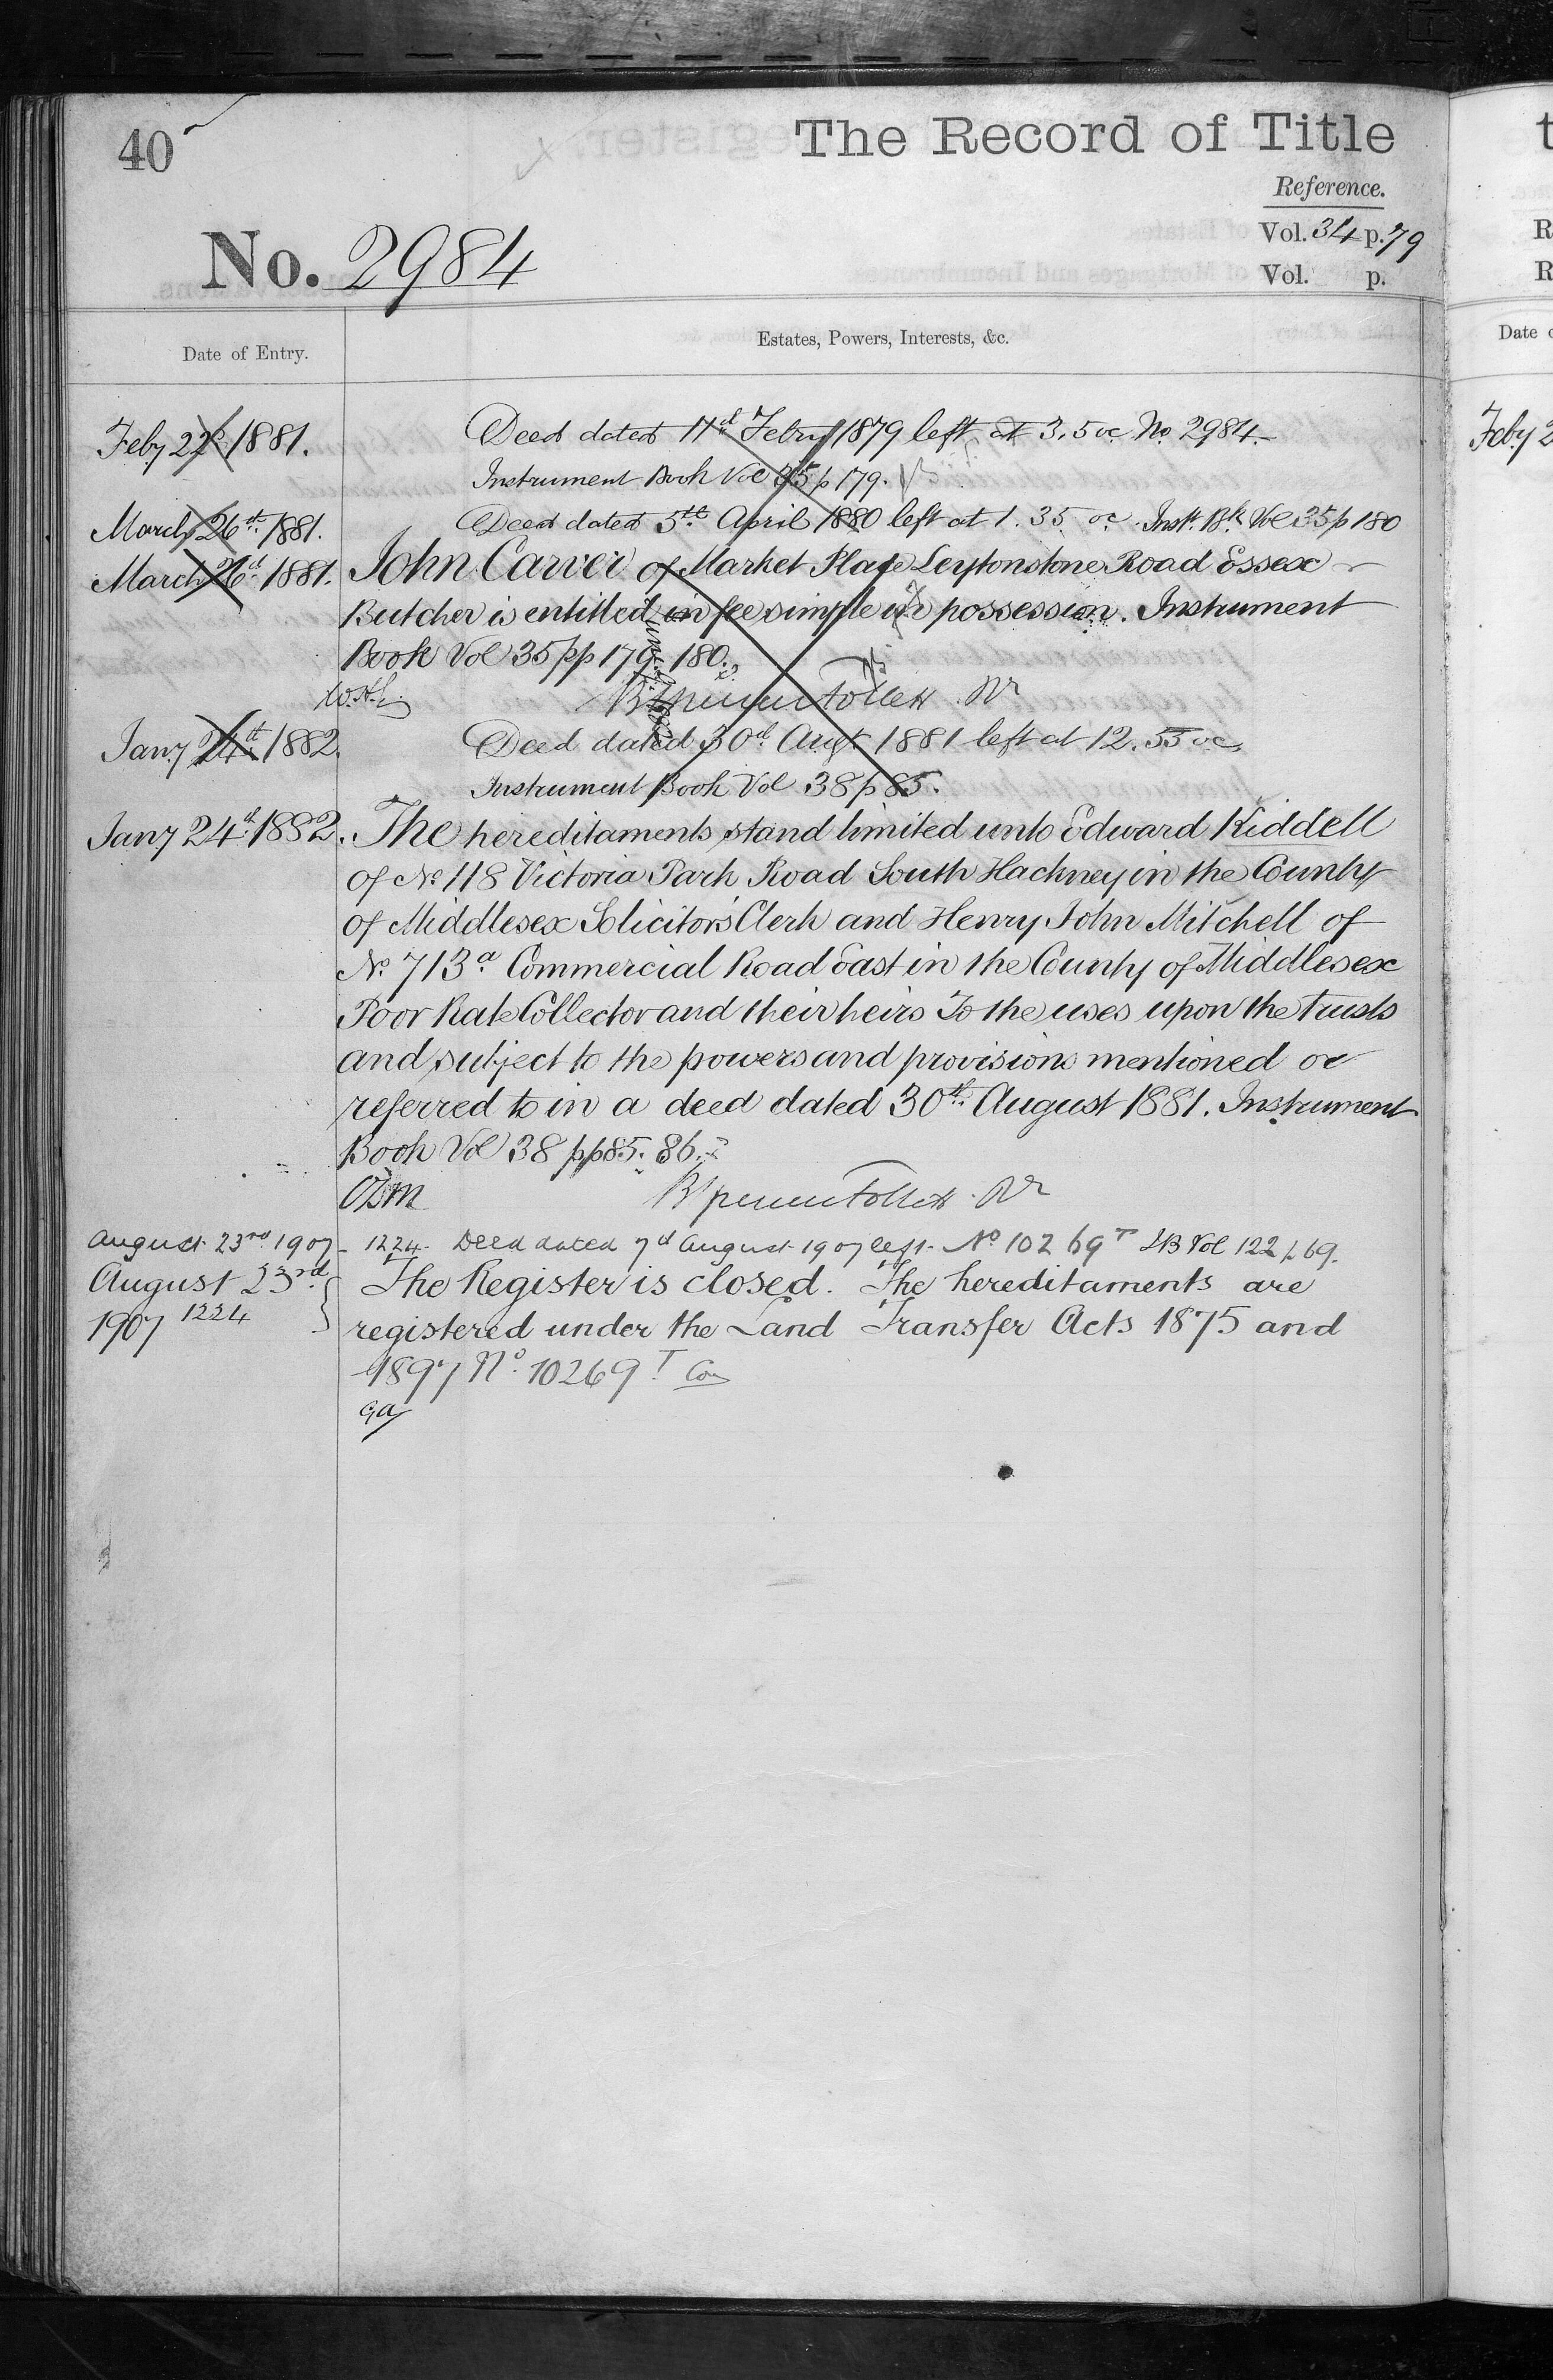 40
The Record of Title
Reference.
No. 2984
Vol. 34 p. 79
Vol. p.
Date of Entry.
Estates, Powers, Interests, &c.
Feby 22d 1881. Deed dated 11th Febry 1879 left at 3.5 oc No. 2984.
Instrument Book Vol 35 p 179.
March 26th 1881. Deed dated 5th April 1880 left at 1.35 oc. Inst. Bk Vol 35 p 180
March 26th 1881. John Carver of Market Place Leytonstone Road Essex
Butcher is entitled in fee simple in possession. Instrument
Book Vol 35 pp 179. 180.
Jany 24th 1882. Deed dated 30th Augt 1881 left at 12.55 oc
Instrument Book Vol 38 p 85.
Jany 24th 1882. The hereditaments stand limited unto Edward Kiddell
of No 118 Victoria Park Road South Hackney in the County
of Middlesex Solicitor's Clerk and Henry John Mitchell of
No. 713a Commercial Road East in the County of Middlesex
Poor Rate Collector and their heirs To the uses upon the trusts
and subject to the powers and provisions mentioned or
referred to in a deed dated 30th August 1881. Instrument
Book Vol 38 pp 85. 86.
August 23rd 1907 1224 Deed dated 7th August 1907 left No 10269T IB Vol 122 p 69.
August 23rd The Register is closed. The hereditaments are
1907 1224 registered under the Land Transfer Acts 1875 and
1897 No. 10269T
Date
Feby 2